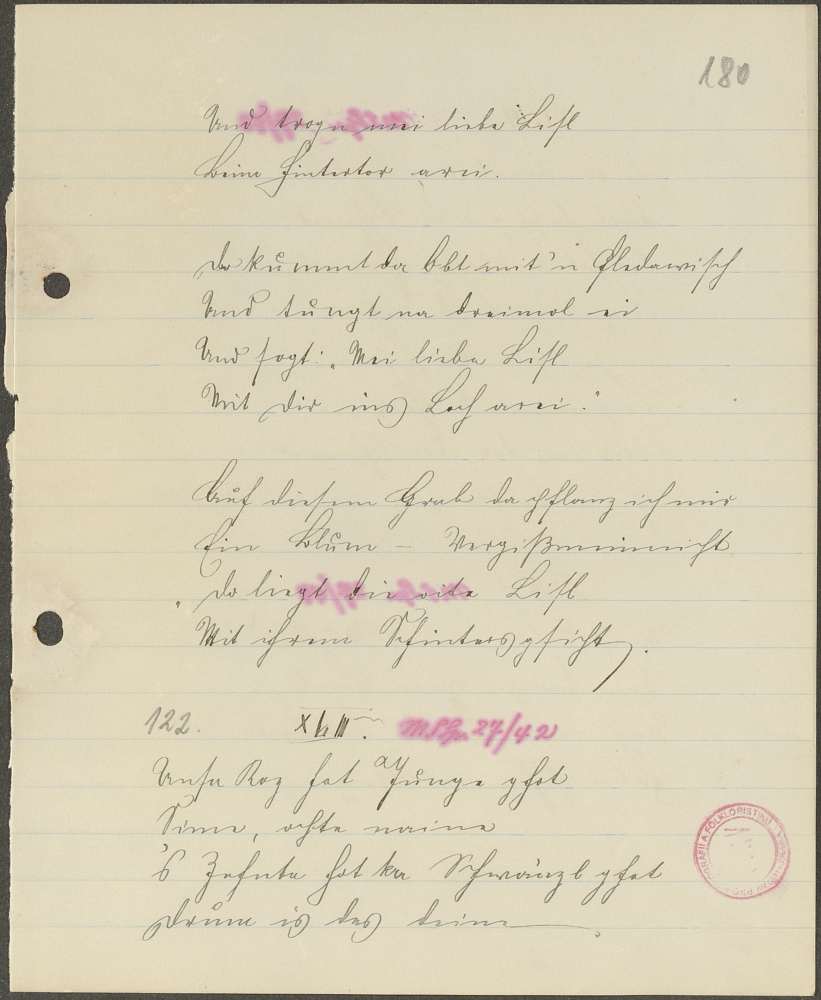 180
Und trogn mei liebe Lisl
Beim Hintertor arei.
Do kummt da Obt mit'n Fledawisch
Und tungt na dreimol ei
Und sogt: „Mei liebe Lisl
Mit dir ins Loch arei."
Auf diesem Grab da pflanz ich mir
Ein Blum – Vergißmeinnicht
„Do liegt die olte Lisl
Mit ihrem Schinters gsicht.
122. XLIII. 27/42
Unsa Koz hat a Junge ghot
Sieme, ochte naine
's Zehnte hot ka Schwänzl ghot
Drum is das deine